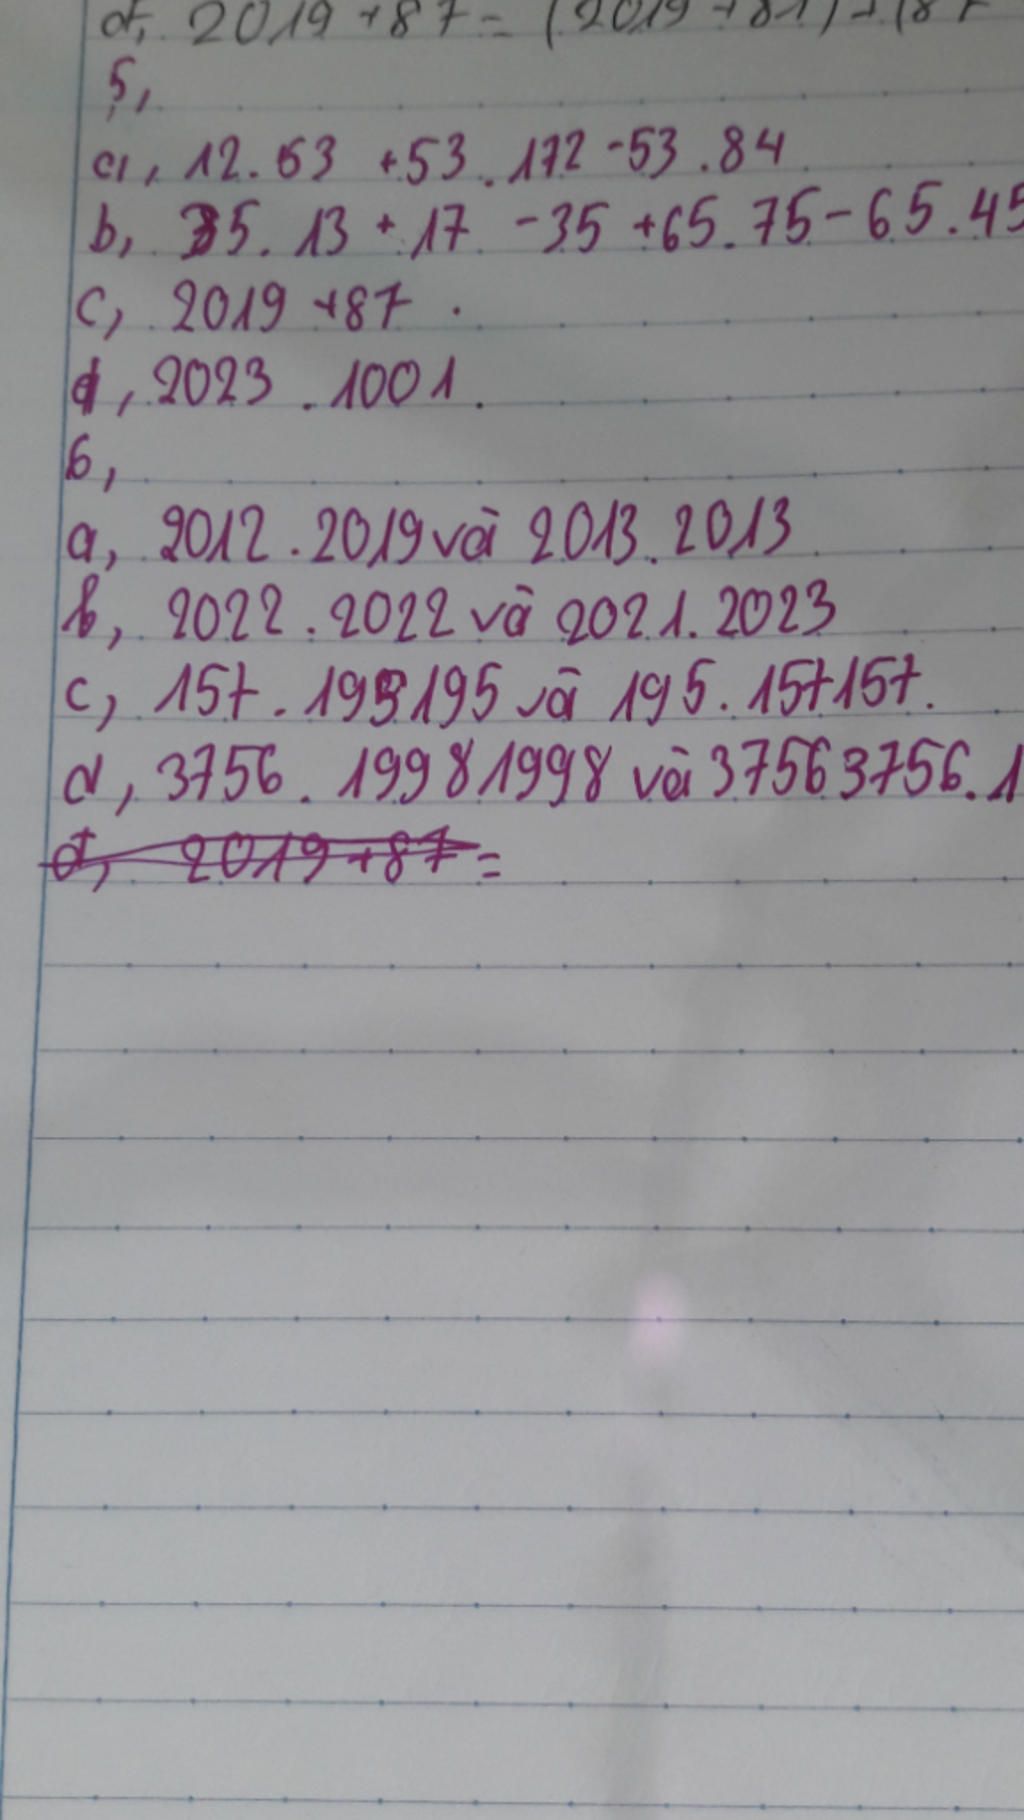 d, 2019 +87 = (2019 +81) + (87
5,
a, 12. 53 +53. 172 -53 .84
b, 35. 13 + 17 -35 +65.75 - 65.45
c, 2019 +87.
d, 2023 . 1001.
6,
a, 2012 . 2019 và 2013. 2013
b, 2022 . 2022 và 2021. 2023
c, 157 . 195195 và 195. 157157.
d, 3756 . 19981998 và 37563756.1
d, 2019 +87 =